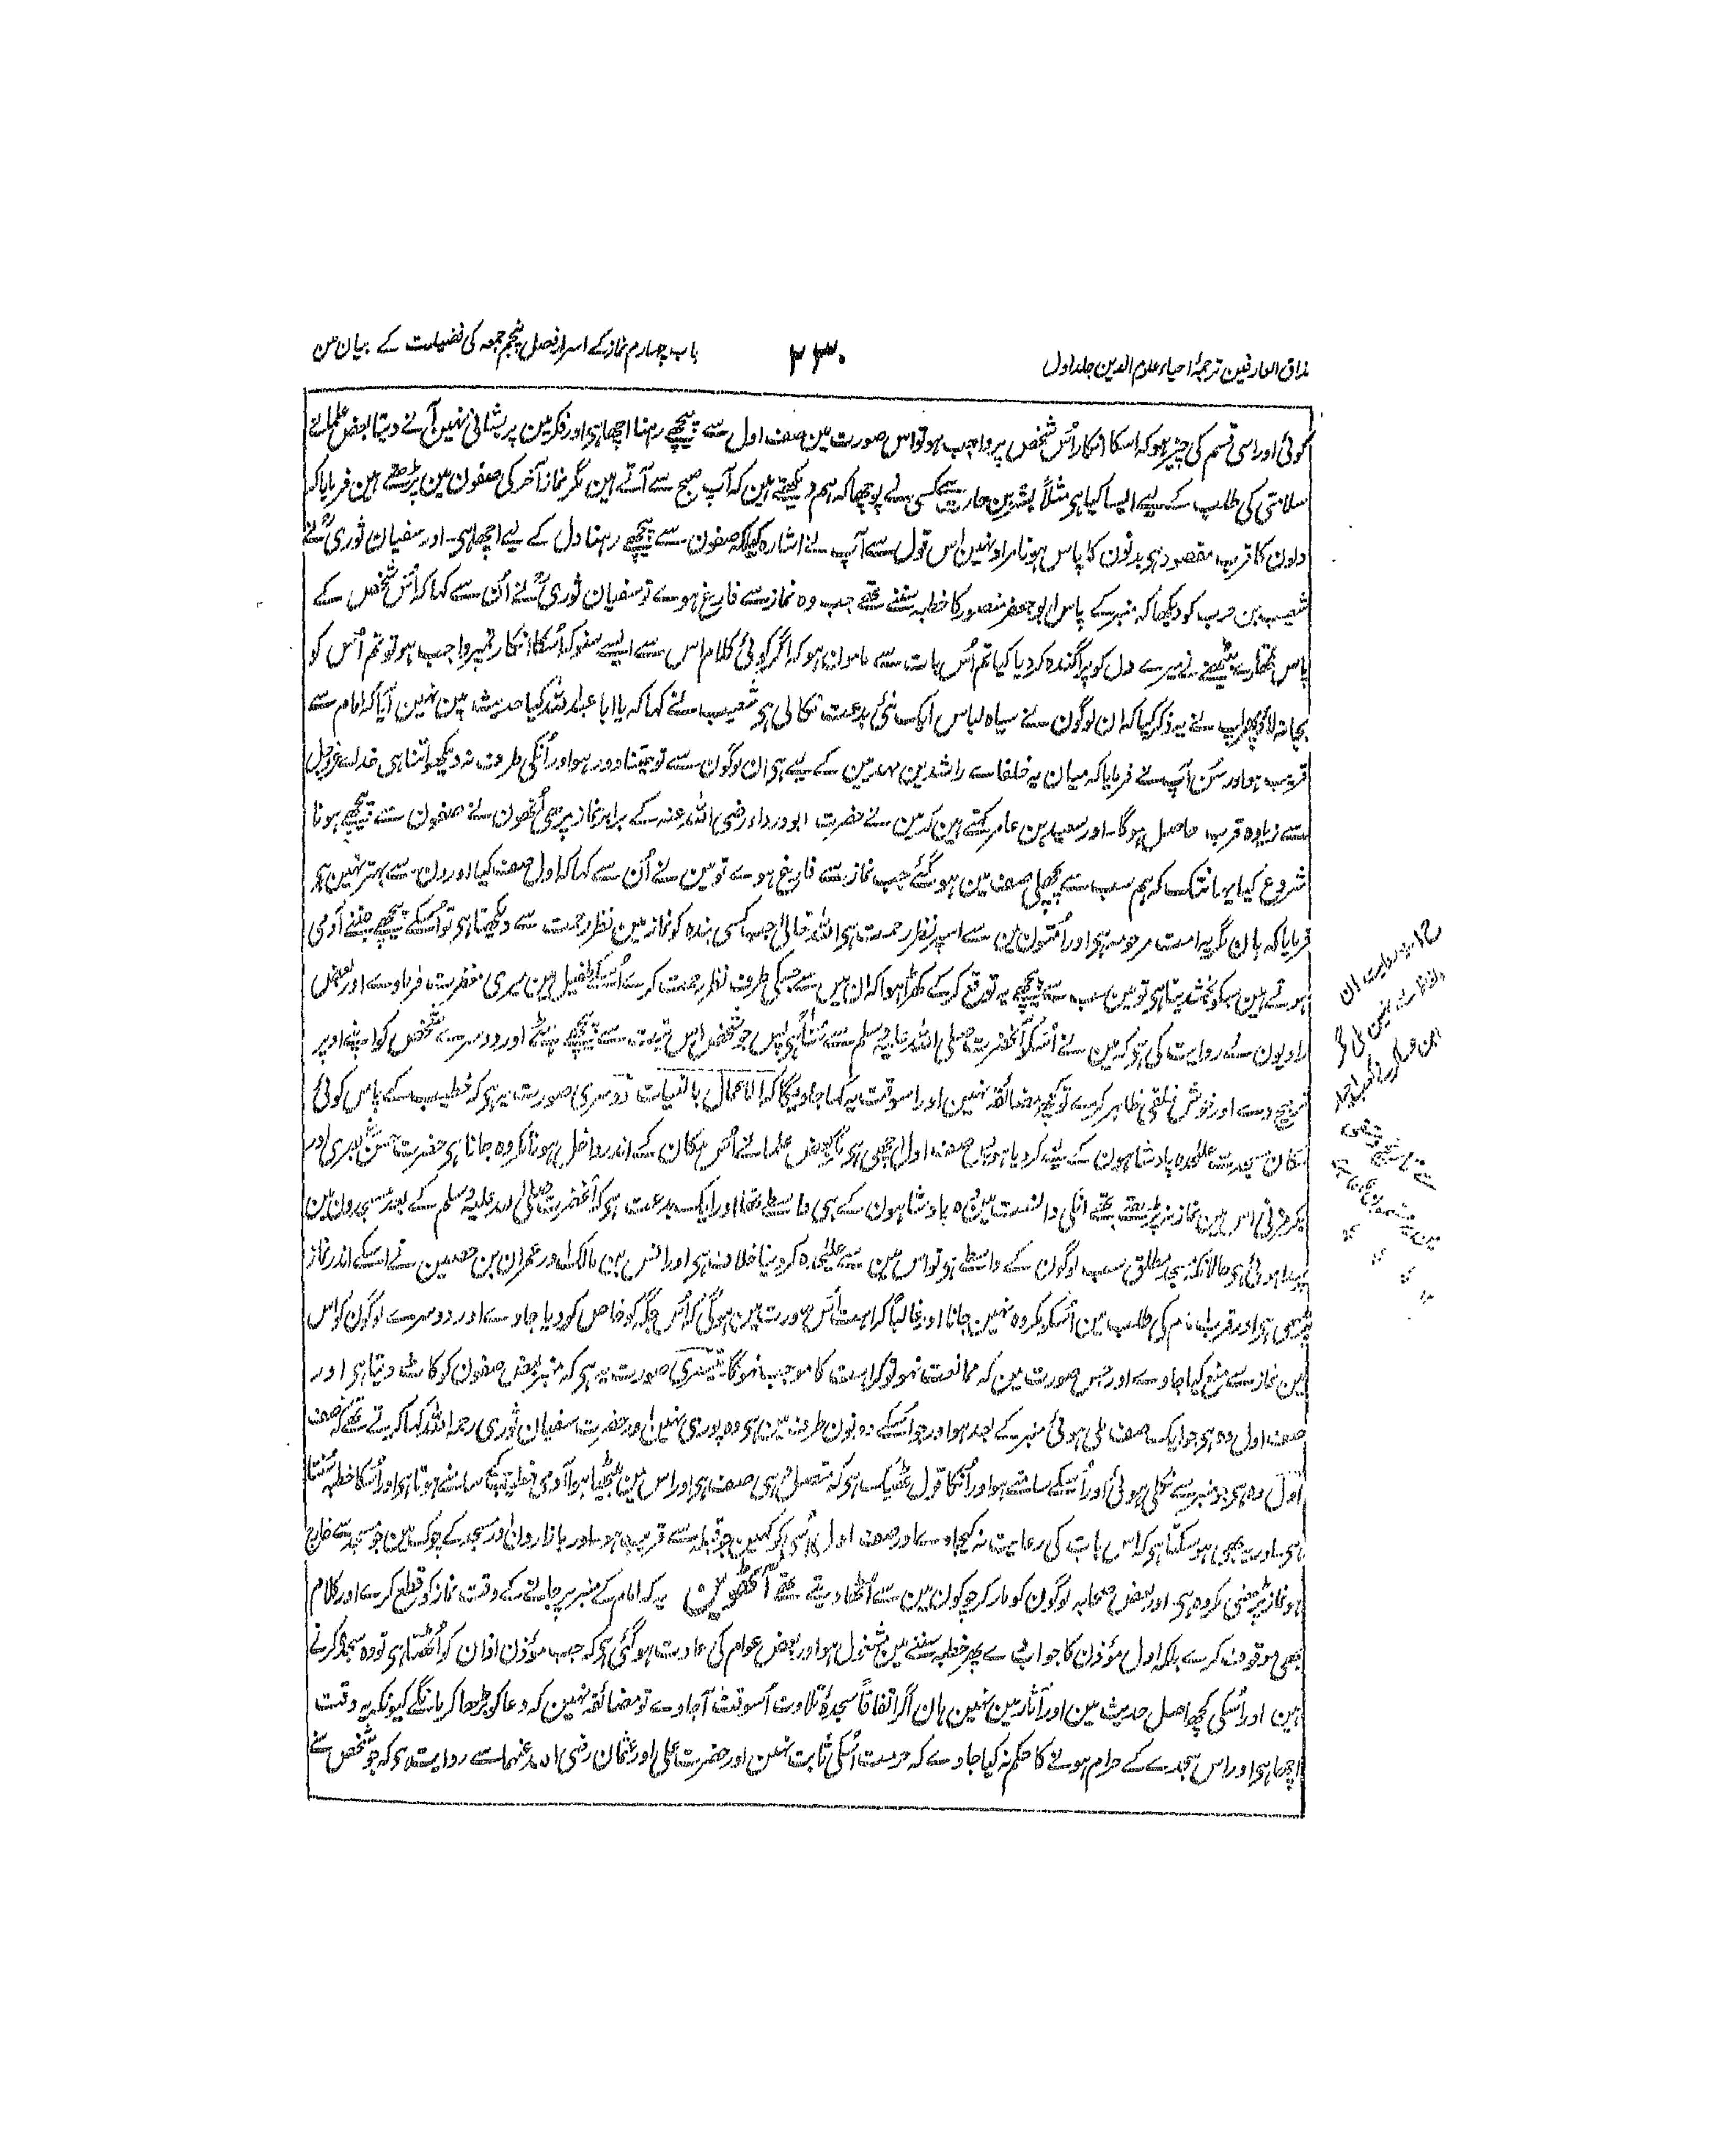 مذاق العارفین ترجمۂ احیاء علوم الدین جلد اول
۲۳۰
باب چہارم نماز کے اسرار فصل پنجم جمعہ کی فضیلت کے بیان مین
کوئی اور اسی قسم کی چیز ہو کہ اسکا انکار اُس شخص پر واجب ہو تو اس صورت مین صف اول سے پیچھے رہنا اچھا ہی اور فکر مین پریشانی نہین آنے دیتا بعض علما نے
سلامتی کی طلب کے لیے ایسا کیا ہی مثلاً بشر بن حارث سے کسی نے پوچھا کہ ہم دیکھتے ہین کہ آپ صبح سے آتے ہین مگر نماز آخر کی صفون مین پڑھتے ہین فرمایا کہ
دلون کا قرب مقصود ہی بدنون کا پاس ہونا مراد نہین اس قول سے آپ نے اشارہ کیا کہ صفون سے پیچھے رہنا دل کے لیے اچھا ہی۔ اور سفیان ثوریؒ نے
شعیب بن حرب کو دیکھا کہ منبر کے پاس ابو جعفر منصور کا خطبہ سنتے تھے جب وہ نماز سے فارغ ہوے تو سفیان ثوریؒ نے اُن سے کہا کہ اُس شخص کے
پاس تمھارے بیٹھنے نے میرے دل کو پراگندہ کر دیا کیا تم اُس بات سے مامون ہو کہ اگر کوئی کلام اس سے ایسے سنو کہ اُسکا انکار تمپر واجب ہو تو تم اُس کو
بجا نہ لاؤ پھر آپ نے یہ ذکر کیا کہ ان لوگون نے سیاہ لباس ایک نئی بدعت نکالی ہی شعیب نے کہا کہ یا ابا عبداللہ کیا حدیث مین نہین آیا کہ امام سے
قریب ہو اور سن آپ نے فرمایا کہ میان یہ خلفاے راشدین مہدیین کے لیے ہی ان لوگون سے تو جتنا دور ہو اور اُنکی طرف نہ دیکھو اتنا ہی خداے عزوجل
سے زیادہ قرب حاصل ہوگا۔ اور سعید بن عامر کہتے ہین کہ مین نے حضرت ابو درداء رضی اللہ عنہ کے برابر نماز پڑھی اُنھون نے صفون سے پیچھے ہونا
شروع کیا یہانتک کہ ہم سب سے پچھلی صف مین ہو گئے جب نماز سے فارغ ہوے تو مین نے اُن سے کہا کہ اول صف کیا اورون سے بہتر نہین ہی
فرمایا کہ ہان مگر یہ امت مرحومہ ہی اور امتون مین سے اسپر نظر رحمت ہی اللہ تعالیٰ جب کسی بندہ کو نماز مین نظر رحمت سے دیکھتا ہی تو اُسکے پیچھے جتنے آدمی
ہوتے ہین سبکو بخشدیتا ہی تو مین سب سے پیچھے یہ توقع کرکے کھڑا ہوا کہ ان مین سے جسکی طرف نظر رحمت کرے اُسکے طفیل مین میری مغفرت فرماوے اور بعض
راویون نے روایت کی ہی کہ مین نے اُسکو آنحضرت صلی اللہ علیہ وسلم سے سُنا ہی پس جو شخص اس نیت سے پیچھے ہٹے اور دوسرے شخص کو اپنے اوپر
ترجیح دے اور خوش خلقی ظاہر کرے تو کچھ مضائقہ نہین اور اسوقت یہ کہا جاویگا کہ الاعمال بالنیات دوسری صورت یہ ہی کہ خطیب کے پاس کوئی
مکان مسجد سے علیحدہ پادشاہون کے لیے کر دیا ہو پس صف اول اچھی ہی مگر بعض علما نے اُس مکان کے اندر داخل ہونا مکروہ جانا ہی حضرت حسن بصری اور
بکر مزنی اس مین نماز نہ پڑھتے تھے انکی دانست مین وہ بادشاہون کے ہی واسطے تھا اور ایک بدعت ہی کہ آنحضرت صلی اللہ علیہ وسلم کے بعد مسجدون مین
پیدا ہوئی ہی حالانکہ مسجد مطلق سب لوگون کے واسطے ہی تو اس مین سے علیحدہ کر دینا خلاف ہی اور انس بن مالک اور عمران بن حصین نے اسکے اندر نماز
پڑھی ہی اور قرب امام کی طلب مین اُسکو مکروہ نہین جانا اور غالباً کراہت اُس صورت مین ہوگی کہ اُس جگہ کو خاص کر دیا جاوے اور دوسرے لوگون کو اس
مین نماز سے منع کیا جاوے اور جس صورت مین کہ ممانعت نہو تو کراہت کا موجب نہوگا تیسری صورت یہ ہی کہ منبر بعض صفون کو کاٹ دیتا ہی اور
صف اول وہ ہی جو ایک صف ملی ہوئی منبر کے بعد ہو اور جو اُسکے دونون طرف مین ہی وہ پوری نہین اور حضرت سفیان ثوری رحمہ اللہ کہا کرتے تھے کہ صف
اول وہ ہی جو منبر سے نکلی ہوئی اور اُسکے سامنے ہو اور اُنکا قول ٹھیک ہی کہ متصل یہی صف ہی اور اس مین بیٹھا ہوا آدمی خطیب کے سامنے ہوتا ہی اور اُسکا خطبہ سُنتا
ہی۔ اور یہ بھی ہو سکتا ہی کہ اس بات کی رعایت نہ کیجاوے اور صف اول اُسی کو کہین جو قبلہ سے قریب ہو۔ اور بازارون اور مسجد کے چوک مین جو مسجد سے خارج
ہو نماز پڑھنی مکروہ ہی۔ اور بعض صحابہ لوگون کو مار کر چوکون مین سے اُٹھا دیتے تھے آٹھوین یہ کہ امام کے منبر پر جانے کے وقت نماز کو قطع کرے اور کلام
بھی موقوف کرے بلکہ اول مؤذن کا جواب دے پھر خطبہ سننے مین مشغول ہو اور بعض عوام کی عادت ہو گئی ہی کہ جب مؤذن اذان کو اُٹھتا ہی تو وہ سجدہ کرتے
ہین اور اُسکی کچھ اصل حدیث مین اور آثار مین نہین ہان اگر اتفاقاً سجدۂ تلاوت اُسوقت آجاوے تو مضائقہ نہین کہ دعا کو بڑھا کر مانگے کیونکہ یہ وقت
اچھا ہی اور اس سجدے کے حرام ہونے کا حکم نہ کیا جاوے کہ حرمت اُسکی ثابت نہین اور حضرت علی اور عثمان رضی اللہ عنہما سے روایت ہی کہ جو شخص سنے
روایت ان
الفاظ سے نہین ملی مگر
ابن عساکر